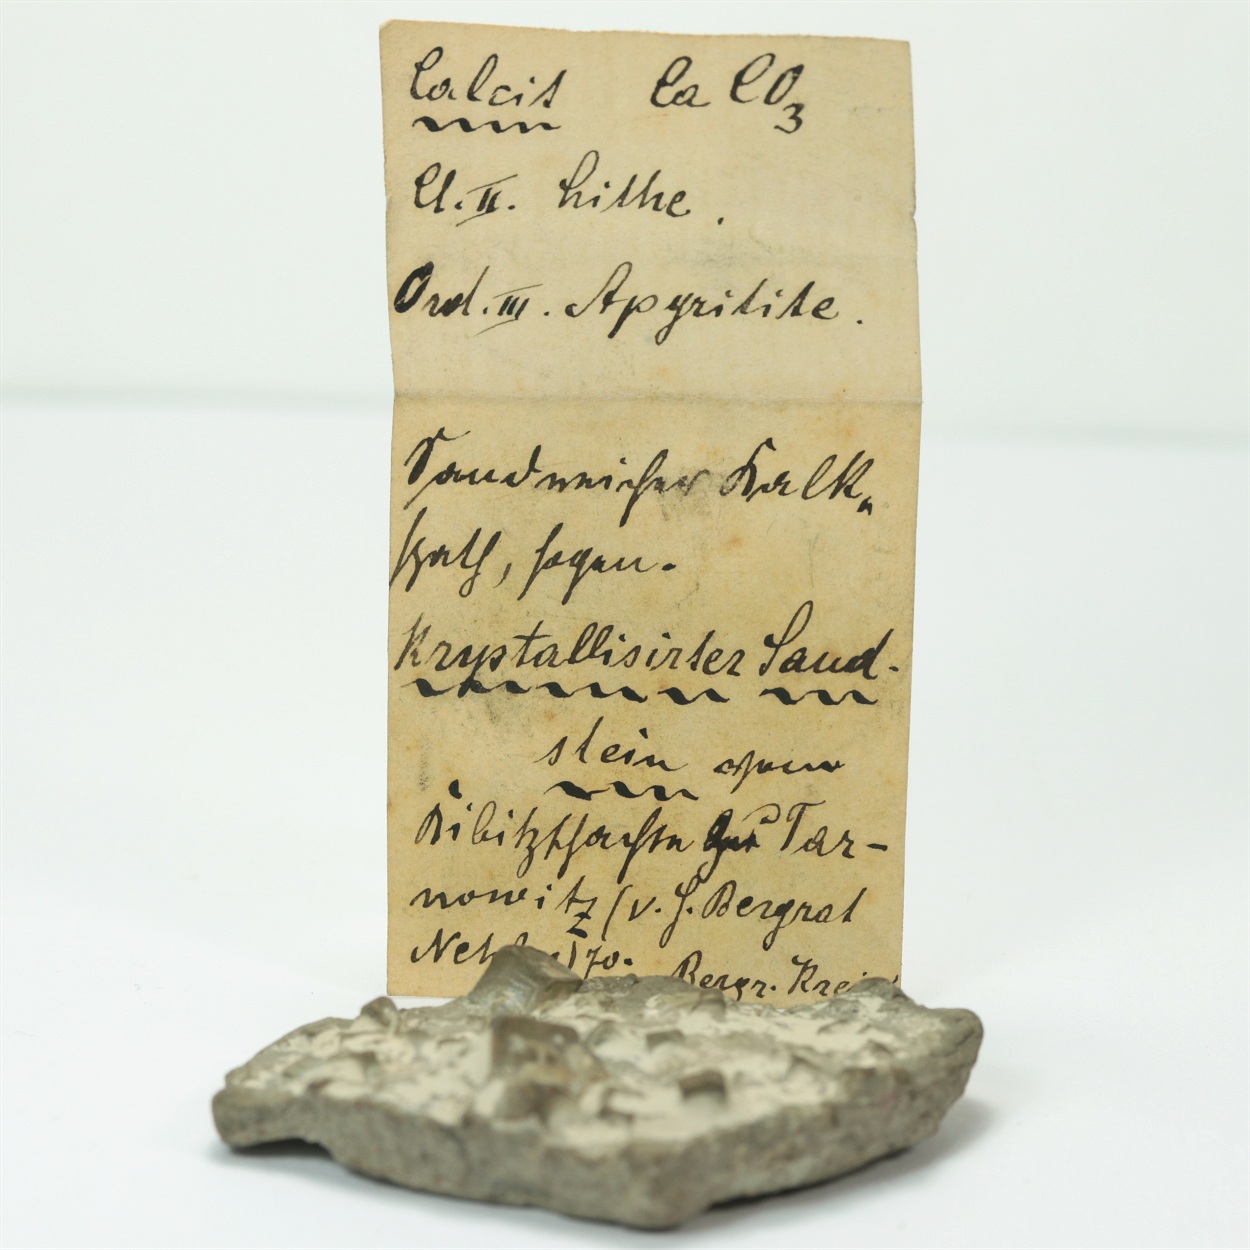 Calcit Ca CO3
Cl. II. Lithe.
Ord. III. Apyritite.
Sandreicher Kalk„
spath, sogen.
Krystallisirter Sand-
stein vom
Kibitzschachte bei Tar-
nowitz (v. H. Bergrat
70. Bergr.